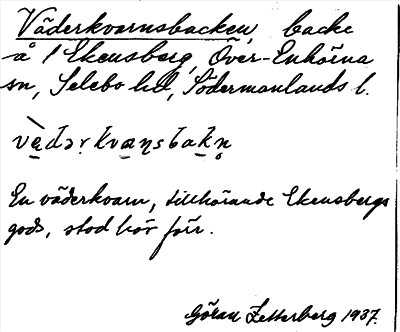 Väderkvarnsbacken, backe
å f Ekensberg, Över-Enhörna
sn, Selebo hd, Södermanlands l.
vè̱dərkva̱ṇsbakṇ
En väderkvarn, tillhörande Ekensbergs
gods, stod här förr.
Göran Zetterberg 1937.